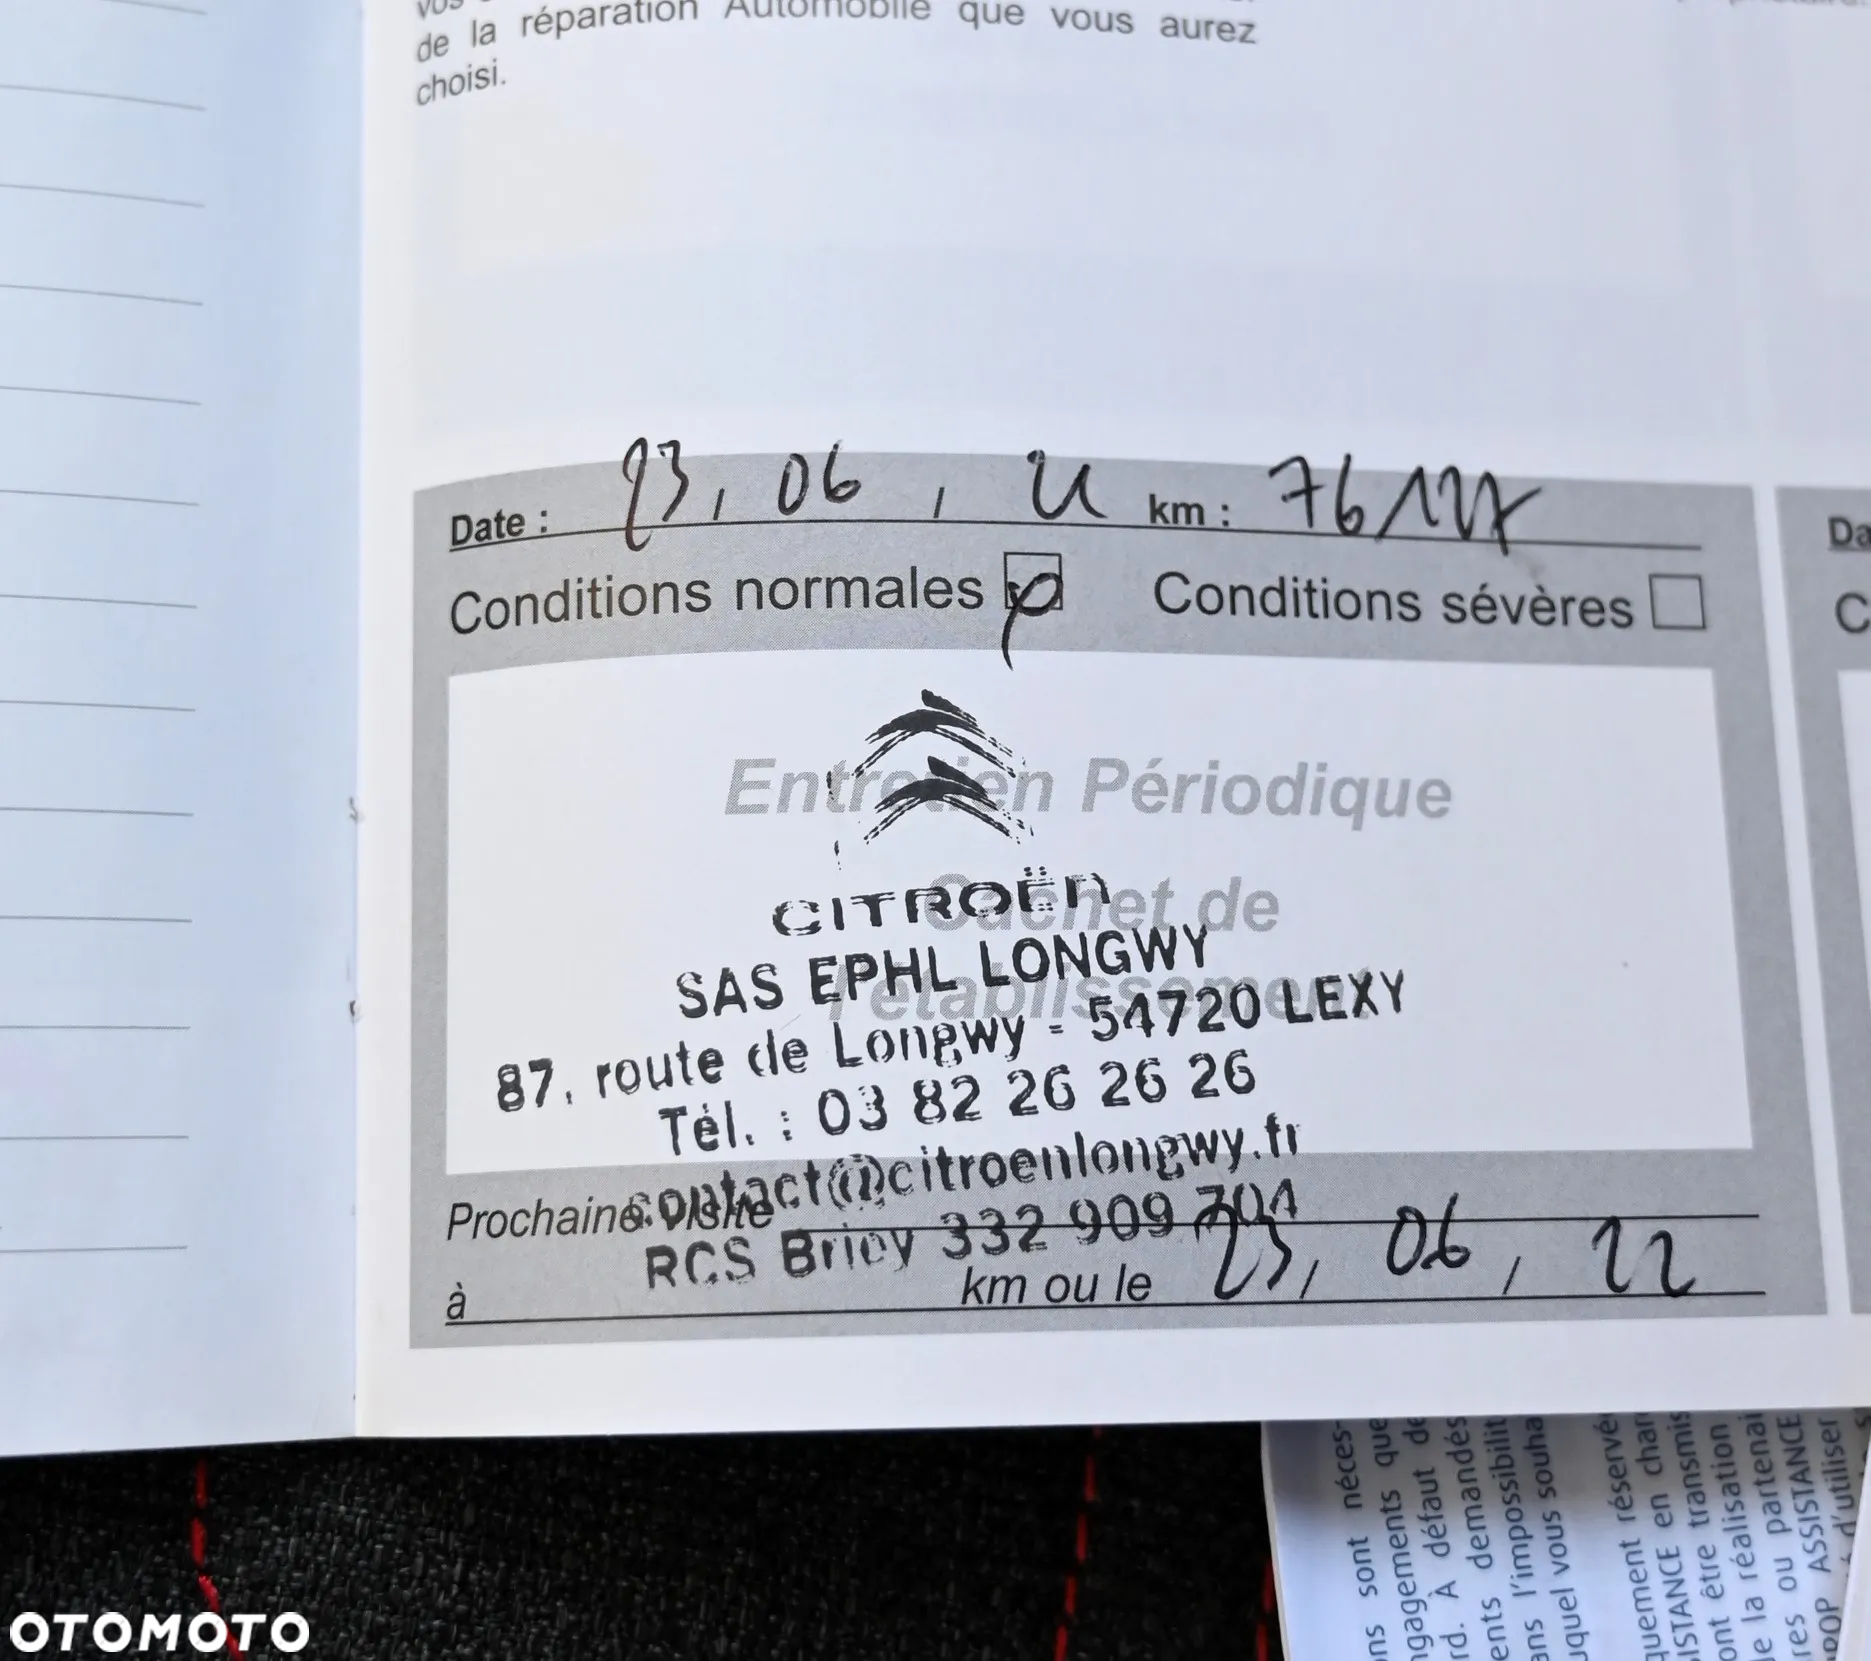 de la réparation Automobile que vous aurez
choisi.
Date : 23, 06, 21 km : 76127
Conditions normales Conditions sévères
Entretien Périodique
Cachet de
l'établissement
CITROËN
SAS EPHL LONGWY
87, route de Longwy - 54720 LEXY
Tél. : 03 82 26 26 26
contact@citroenlongwy.fr
Prochaine visite
RCS Briey 332 909 701
à km ou le 23, 06, 22
Da
C
ons sont néces-
ngagements que
rd. À défaut de
ents demandés
ans l'impossibilit
uquel vous souha
quement réservé
ISTANCE en char
ont être transmis
de la réalisation
res ou partenai
ROP ASSISTANCE
d'utiliser
OTOMOTO